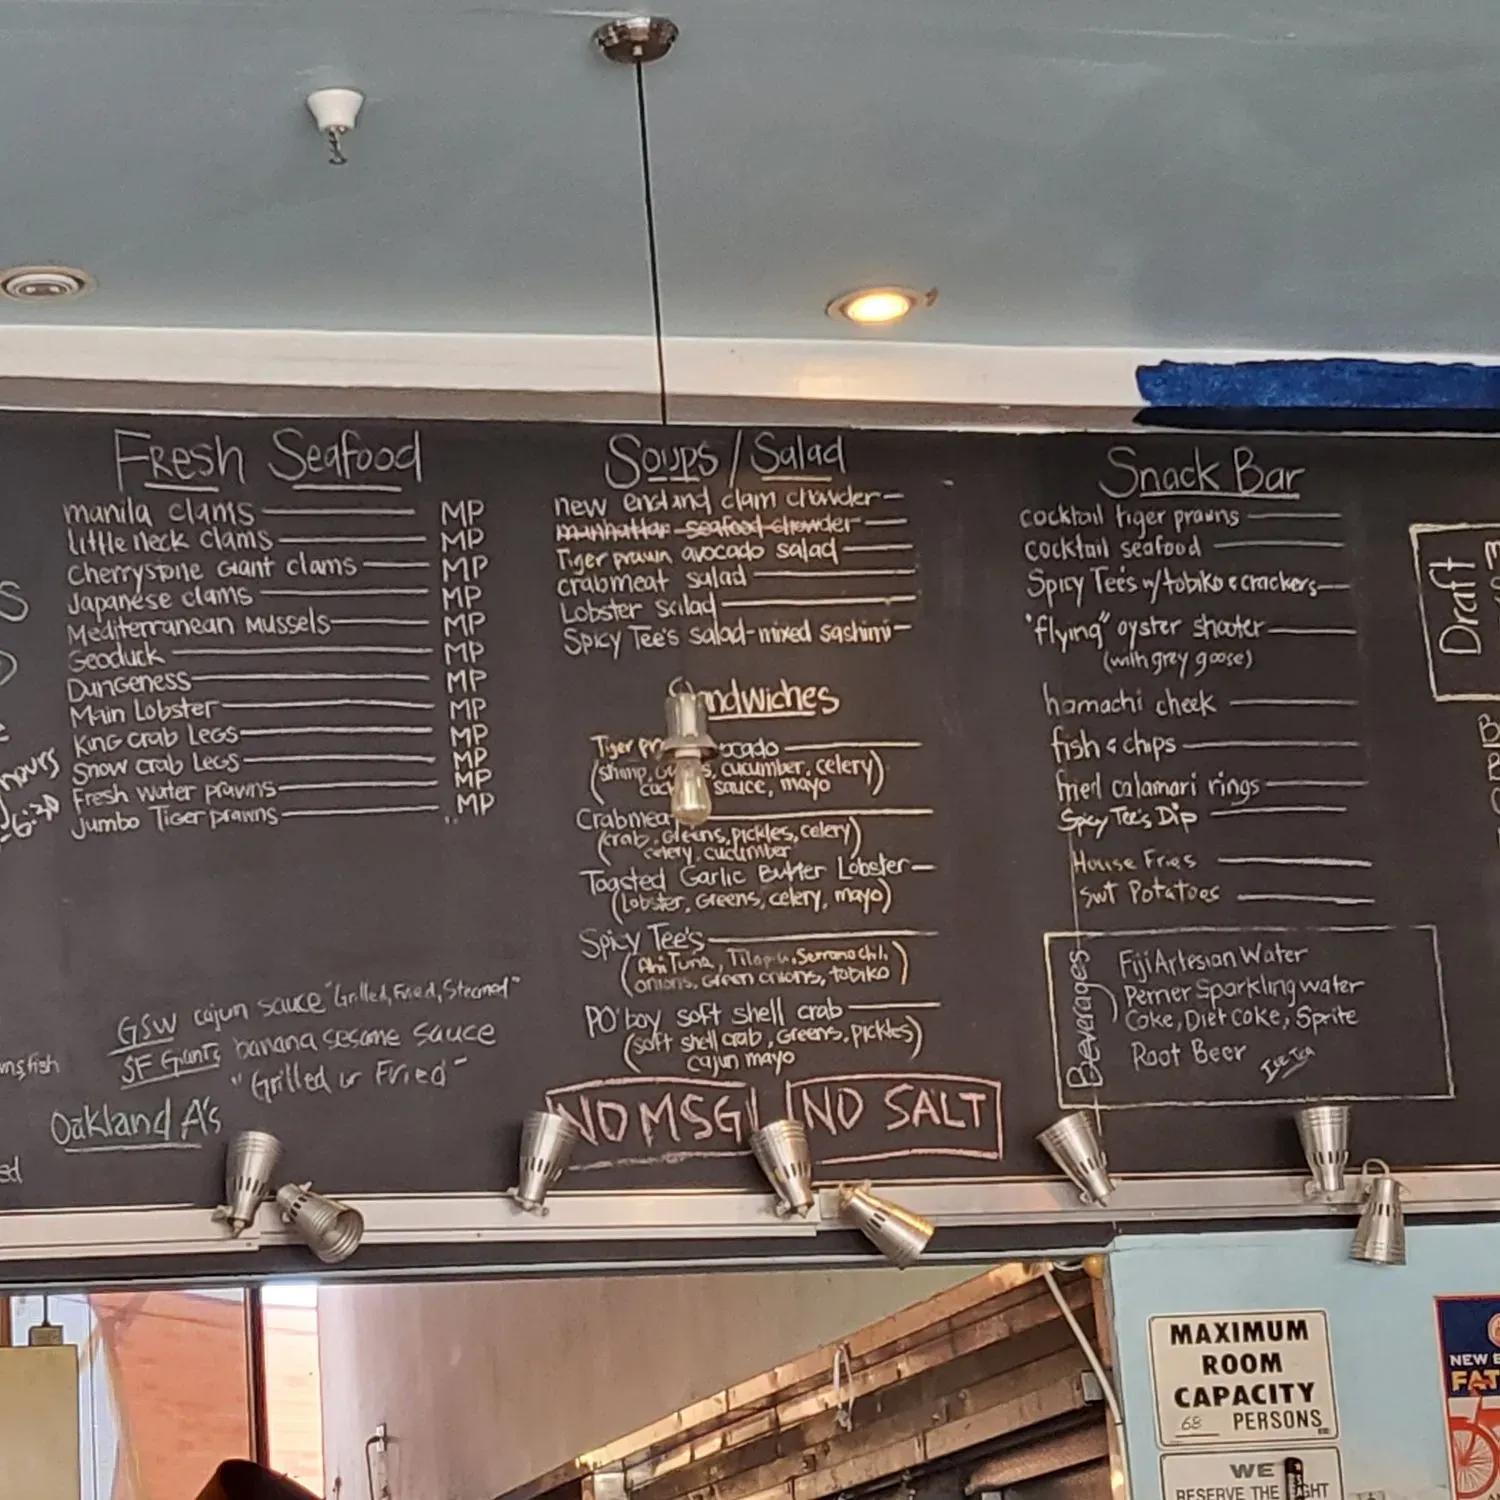 Fresh Seafood
manila clams MP
little neck clams MP
Cherrystone Giant clams MP
Japanese clams MP
Mediterranean Mussels MP
Geoduck MP
Dungeness MP
Main Lobster MP
King Crab Legs MP
Snow Crab Legs MP
Fresh water prawns MP
Jumbo Tiger prawns MP
GSW cajun sauce "Grilled, Fried, Steamed"
SF Giants banana sesame sauce
"Grilled or Fried"
Oakland A's
hours
Soups / Salad
new england clam chowder
manhattan seafood chowder
Tiger prawn avocado salad
crabmeat salad
Lobster salad
Spicy Tee's salad-mixed sashimi
Sandwiches
Tiger
cucumber, celery)
sauce, mayo
(crab, Greens, pickles, celery)
celery, cucumber
Toasted Garlic Butter Lobster
(Lobster, Greens, celery, mayo)
Spicy Tee's
(Ahi Tuna, Tilapia, Serrano chil,
onions, Green onions, tobiko)
PO'boy soft shell crab
(soft shell crab, Greens, pickles)
cajun mayo
NO MSG
NO SALT
Snack Bar
cocktail tiger prawns
cocktail seafood
Spicy Tee's w/tobiko & crackers
"flying" oyster shooter
(with grey goose)
hamachi cheek
fish & chips
fried calamari rings
Spicy Tee's Dip
House Fries
swt Potatoes
Beverages
Fiji Artesian Water
Perrier Sparkling water
Coke, Diet coke, Sprite
Root Beer Ice Tea
Draft
MAXIMUM
ROOM
CAPACITY
68 PERSONS
WE
RESERVE THE
NEW